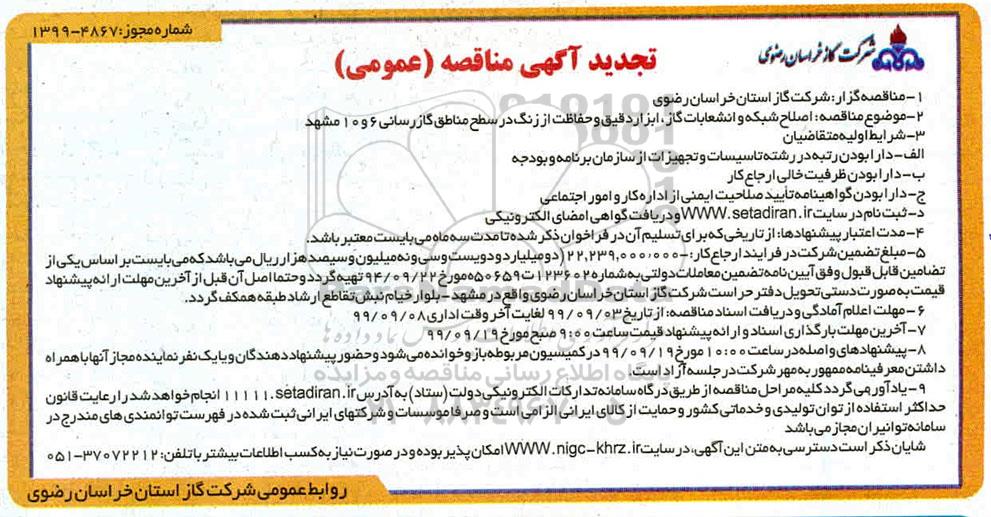 شماره مجوز: ۴۸۶۷-۱۳۹۹
شرکت گاز خراسان رضوی
تجدید آگهی مناقصه (عمومی)
۱-مناقصه‌گزار: شرکت گاز استان خراسان رضوی
۲-موضوع مناقصه: اصلاح شبکه و انشعابات گاز، ابزار دقیق و حفاظت از زنگ در سطح مناطق گازرسانی ۶ و ۱۰ مشهد
۳-شرایط اولیه متقاضیان
الف-دارا بودن رتبه در رشته تاسیسات و تجهیزات از سازمان برنامه و بودجه
ب-دارا بودن ظرفیت خالی ارجاع کار
ج-دارا بودن گواهینامه تأیید صلاحیت ایمنی از اداره کار و امور اجتماعی
د-ثبت نام در سایت WWW.setadiran.ir و دریافت گواهی امضای الکترونیکی
۴-مدت اعتبار پیشنهادها: از تاریخی که برای تسلیم آن در فراخوان ذکر شده تا مدت سه ماه می بایست معتبر باشد.
۵-مبلغ تضمین شرکت در فرایند ارجاع کار: -/۲,۲۳۹,۰۰۰,۰۰۰ (دو میلیارد و دویست و سی و نه میلیون و سیصد هزار ریال می باشد که می بایست بر اساس یکی از
تضامین قابل قبول وفق آیین نامه تضمین معاملات دولتی به شماره ۱۲۳۶۰۲/ت۵۰۶۵۹ه مورخ ۹۴/۰۹/۲۲ تهیه گردد و حتما اصل آن قبل از آخرین مهلت ارائه پیشنهاد
قیمت به صورت دستی تحویل دفتر حراست شرکت گاز استان خراسان رضوی واقع در مشهد-بلوار خیام نبش تقاطع ارشاد طبقه همکف گردد.
۶-مهلت اعلام آمادگی و دریافت اسناد مناقصه: از تاریخ ۹۹/۰۹/۰۳ لغایت آخر وقت اداری ۹۹/۰۹/۰۸
۷-آخرین مهلت بارگذاری اسناد و ارائه پیشنهاد قیمت ساعت ۹:۰۰ صبح مورخ ۹۹/۰۹/۱۹
۸-پیشنهادهای واصله در ساعت ۱۰:۰۰ مورخ ۹۹/۰۹/۱۹ در کمیسیون مربوطه باز و خوانده می شود و حضور پیشنهاددهندگان و یا یک نفر نماینده مجاز آنها با همراه
داشتن معرفینامه ممهور به مهر شرکت در جلسه آزاد است.
۹-یادآور می گردد کلیه مراحل مناقصه از طریق درگاه سامانه تدارکات الکترونیکی دولت (ستاد) به آدرس 11111.setadiran.ir انجام خواهد شد را رعایت قانون
حداکثر استفاده از توان تولیدی و خدماتی کشور و حمایت از کالای ایرانی الزامی است و صرفا موسسات و شرکتهای ایرانی ثبت شده در فهرست توانمندی های مندرج در
سامانه توانیران مجاز می باشد
شایان ذکر است دسترسی به متن این آگهی، در سایت WWW.nigc-khrz.ir امکان پذیر بوده و در صورت نیاز به کسب اطلاعات بیشتر با تلفن: ۳۷۰۷۲۲۱۲-۰۵۱
روابط عمومی شرکت گاز استان خراسان رضوی